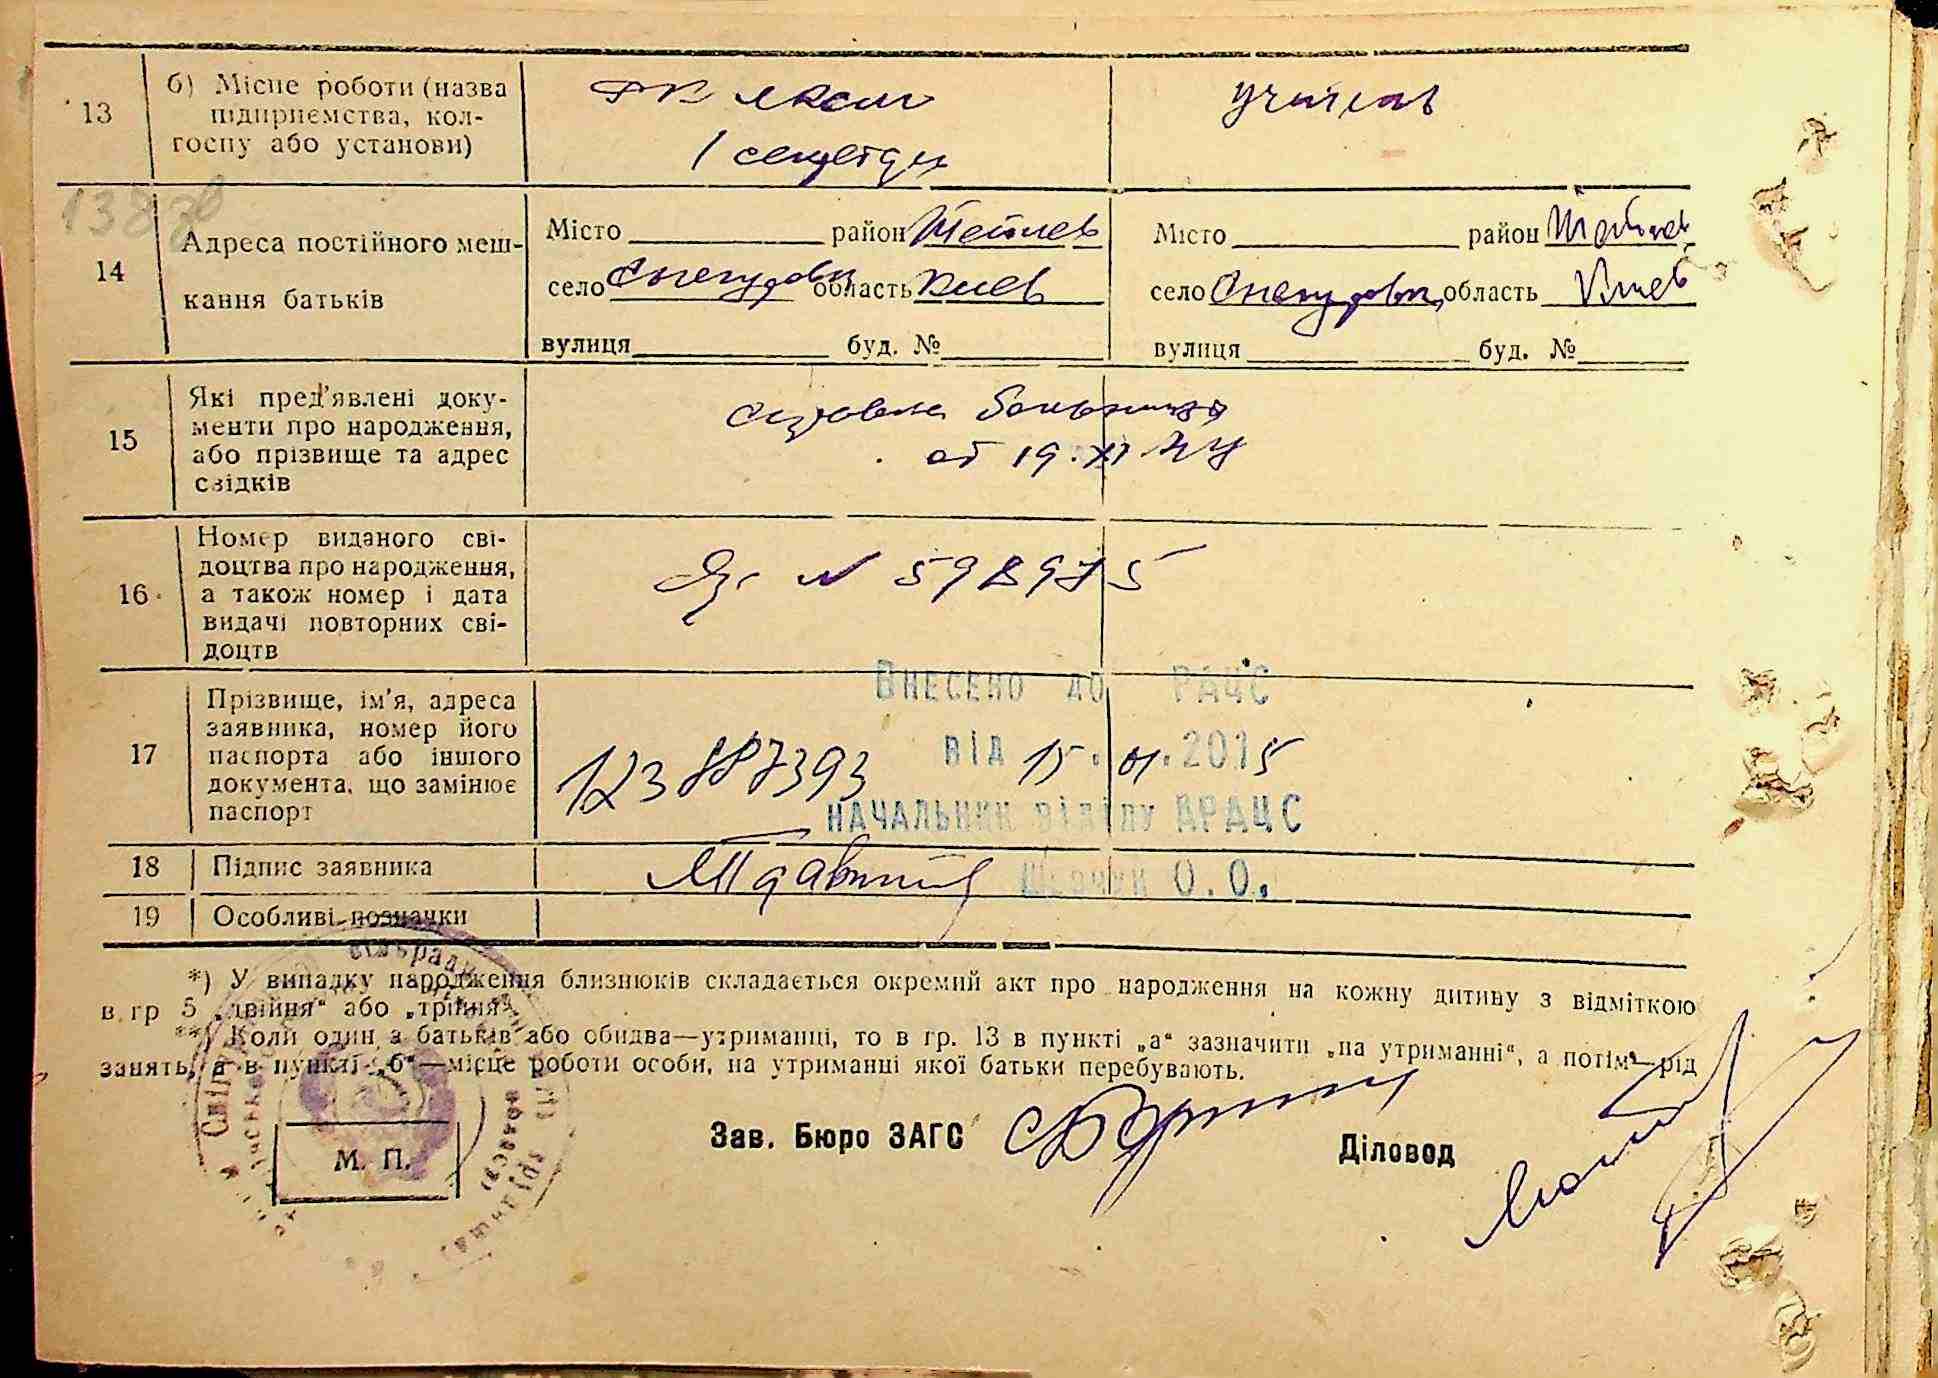 13
б) Місце роботи (назва
підприємства, кол-
госпу або установи)
РК ЛКСМ
1 секретар
учитель
13878
14
Адреса постійного меш-
кання батьків
Місто район Тетиев
село Снегуровка область Киев
вулиця буд. №
Місто район Тетиев
село Снегуровка область Киев
вулиця буд. №
15
Які пред'явлені доку-
менти про народження,
або прізвище та адрес
свідків
справка больницы
от 19.XI
16
Номер виданого сві-
доцтва про народження,
а також номер і дата
видачі повторних сві-
доцтв
№ 598975
17
Прізвище, ім'я, адреса
заявника, номер його
паспорта або іншого
документа, що замінює
паспорт
123887393
Внесено до РАЦС
від 15.01.2015
начальник відділу ДРАЦС
Шевчук О.О.
18
Підпис заявника
19
Особливі позначки
*) У випадку народження близнюків складається окремий акт про народження на кожну дитину з відміткою
в гр 5 „двійня“ або „трійня“.
**) Коли один з батьків або обидва—утриманці, то в гр. 13 в пункті „а“ зазначити „на утриманні“, а потім—рід
занять, а в пункті „б“—місце роботи особи, на утриманні якої батьки перебувають.
М. П.
Зав. Бюро ЗАГС
Діловод